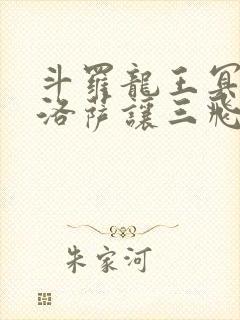 斗羅龍王冥
洛薩讓三飛
朱家河